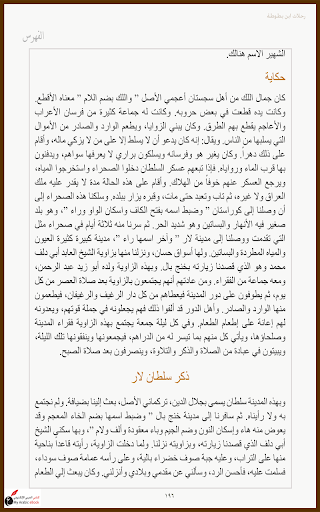 رحلات ابن بطوطة
الفهرس
الشهير الاسم هنالك.
حكاية
كان جمال اللك من أهل سجستان أعجمي الأصل " واللك بضم اللام " معناه الأقطع.
وكانت يده قطعت في بعض حروبه. وكانت له جماعة كثيرة من فرسان الأعراب
والأعاجم يقطع بهم الطرق. وكان يبني الزوايا، ويطعم الوارد والصادر من الأموال
التي يسلبها من الناس. ويقال: إنه كان يدعو أن لا يسلط إلا على من لا يزكي ماله، وأقام
على ذلك دهراً. وكان يغير هو وفرسانه ويسلكون براري لا يعرفها سواهم، ويدفنون
بها قرب الماء ورواياه. فإذا تبعهم عسكر السلطان دخلوا الصحراء واستخرجوا المياه،
ويرجع العسكر عنهم خوفاً من الهلاك. وأقام على هذه الحالة مدة لا يقدر عليه ملك
العراق ولا غيره، ثم تاب وتعبد حتى مات، وقبره يزار ببلده. وسلكنا هذه الصحراء إلى
أن وصلنا إلى كوراستان " وضبط اسمه بفتح الكاف واسكان الواو وراء "، وهو بلد
صغير فيه الأنهار والبساتين وهو شديد الحر. ثم سرنا منه ثلاثة أيام في صحراء مثل
التي تقدمت ووصلنا إلى مدينة لار " وآخر اسمها راء "، مدينة كبيرة كثيرة العيون
والمياه المطردة والبساتين. ولها أسواق حسان، ونزلنا منها بزاوية الشيخ العابد أبي دلف
محمد وهو الذي قصدنا زيارته بخنج بال. وبهذه الزاوية ولده أبو زيد عبد الرحمن،
ومعه جماعة من الفقراء. ومن عادتهم أنهم يجتمعون بالزاوية بعد صلاة العصر من كل
يوم، ثم يطوفون على دور المدينة فيعطاهم من كل دار الرغيف والرغيفان، فيطعمون
منها الوارد والصادر. وأهل الدور قد ألفوا ذلك فهم يجعلونه في جملة قوتهم، ويعدونه
لهم إعانة على إطعام الطعام. وفي كل ليلة جمعة يجتمع بهذه الزاوية فقراء المدينة
وصلحاؤها، ويأتي كل منهم بما تيسر له من الدراهم، فيجمعونها وينفقونها تلك الليلة،
ويبيتون في عبادة من الصلاة والذكر والتلاوة، وينصرفون بعد صلاة الصبح.
ذكر سلطان لار
وبهذه المدينة سلطان يسمى بجلال الدين، تركماني الأصل، بعث إلينا بضيافة. ولم نجتمع
به ولا رأيناه. ثم سافرنا إلى مدينة خنج بال " وضبط اسمها بضم الخاء المعجم وقد
يعوض منه هاء وإسكان النون وضم الجيم وباء معقودة وألف ولام "، وبها سكنى الشيخ
أبي دلف الذي قصدنا زيارته، وبزاويته نزلنا. ولما دخلت الزاوية، رأيته قاعداً بناحية
منها على التراب، وعليه جبة صوف خضراء بالية، وعلى رأسه عمامة صوف سوداء،
فسلمت عليه، فأحسن الرد، وسألني عن مقدمي وبلادي وأنزلني. وكان يبعث إلي الطعام
١٩٦